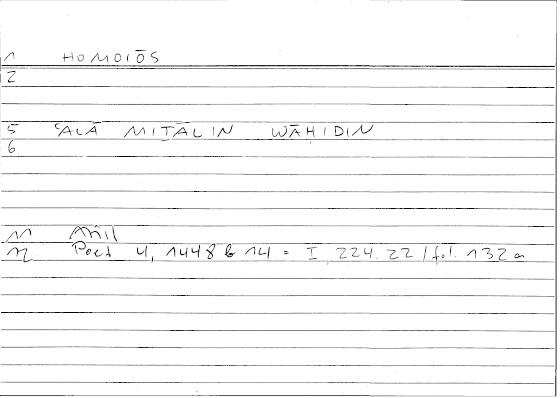 1 HOMOIŌS
2
5 ʿALĀ MIṮĀLIN WĀḤIDIN
6
11 Arist
12 Poet 4, 1448 b 14 = I, 224.22 / fol. 132a